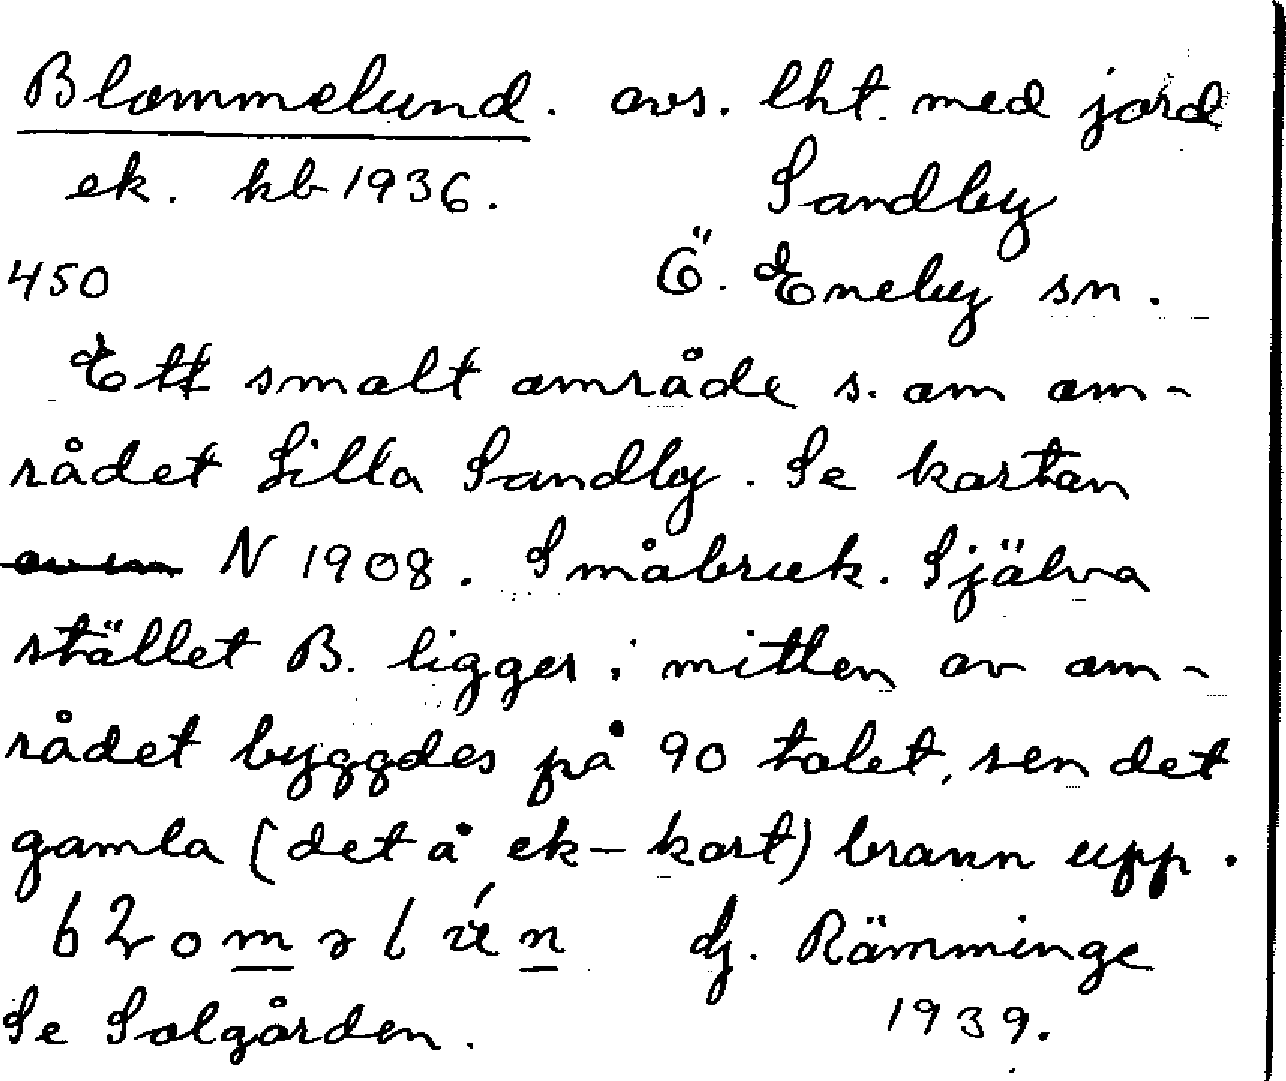 Blommelund. avs. lht. med jord
ek. kb 1936. Sandby
450 Ö. Eneby sn.
Ett smalt område s. om om-
rådet Lilla Sandby. Se kartan
N 1908. Småbruk. Själva
stället B. ligger i mitten av om-
rådet byggdes på 90 talet, sen det
gamla (det å ek-kart) brann upp.
dj. Rämminge
Se Solgården. 1939.